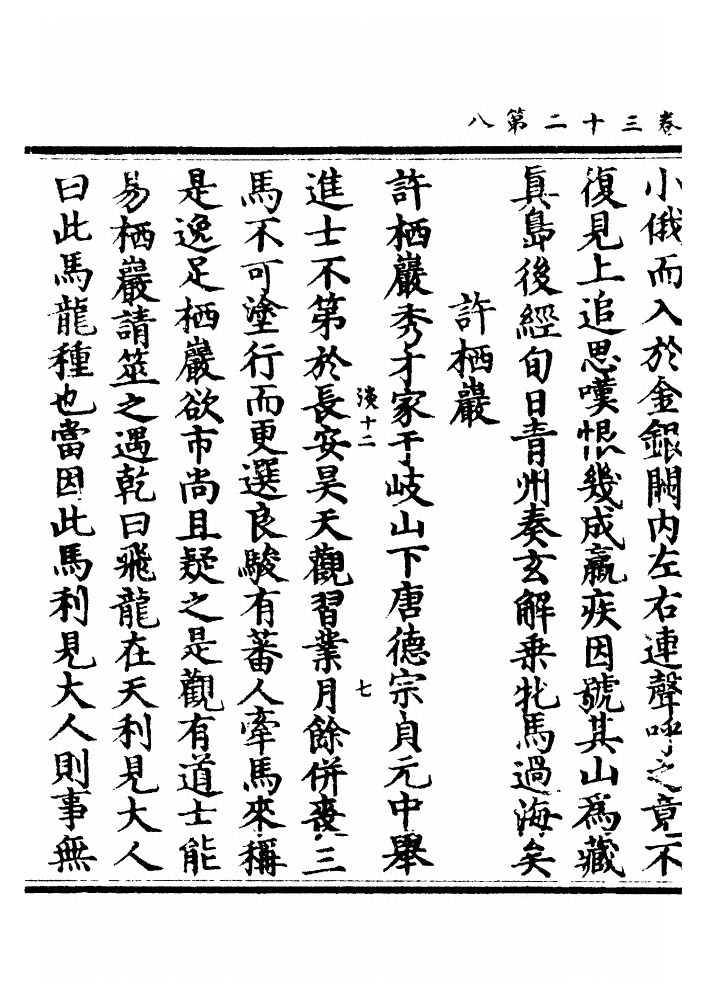 卷三十二第八
小俄而入於金銀闕内左右連聲呼之竟不
復見上追思嘆恨幾成羸疾因號其山爲藏
眞島後經旬日青州奏玄解乗牝馬過海矣
許栖巖
許栖巖秀才家于岐山下唐德宗貞元中舉
淡十二
七
進士不第於長安昊天觀習業月餘併喪三
馬不可塗行而更選良駿有蕃人牽馬來稱
是逸足栖巖欲市尚且疑之是觀有道士能
易栖巖請筮之遇乾曰飛龍在天利見大人
曰此馬龍種也當因此馬利見大人則事無